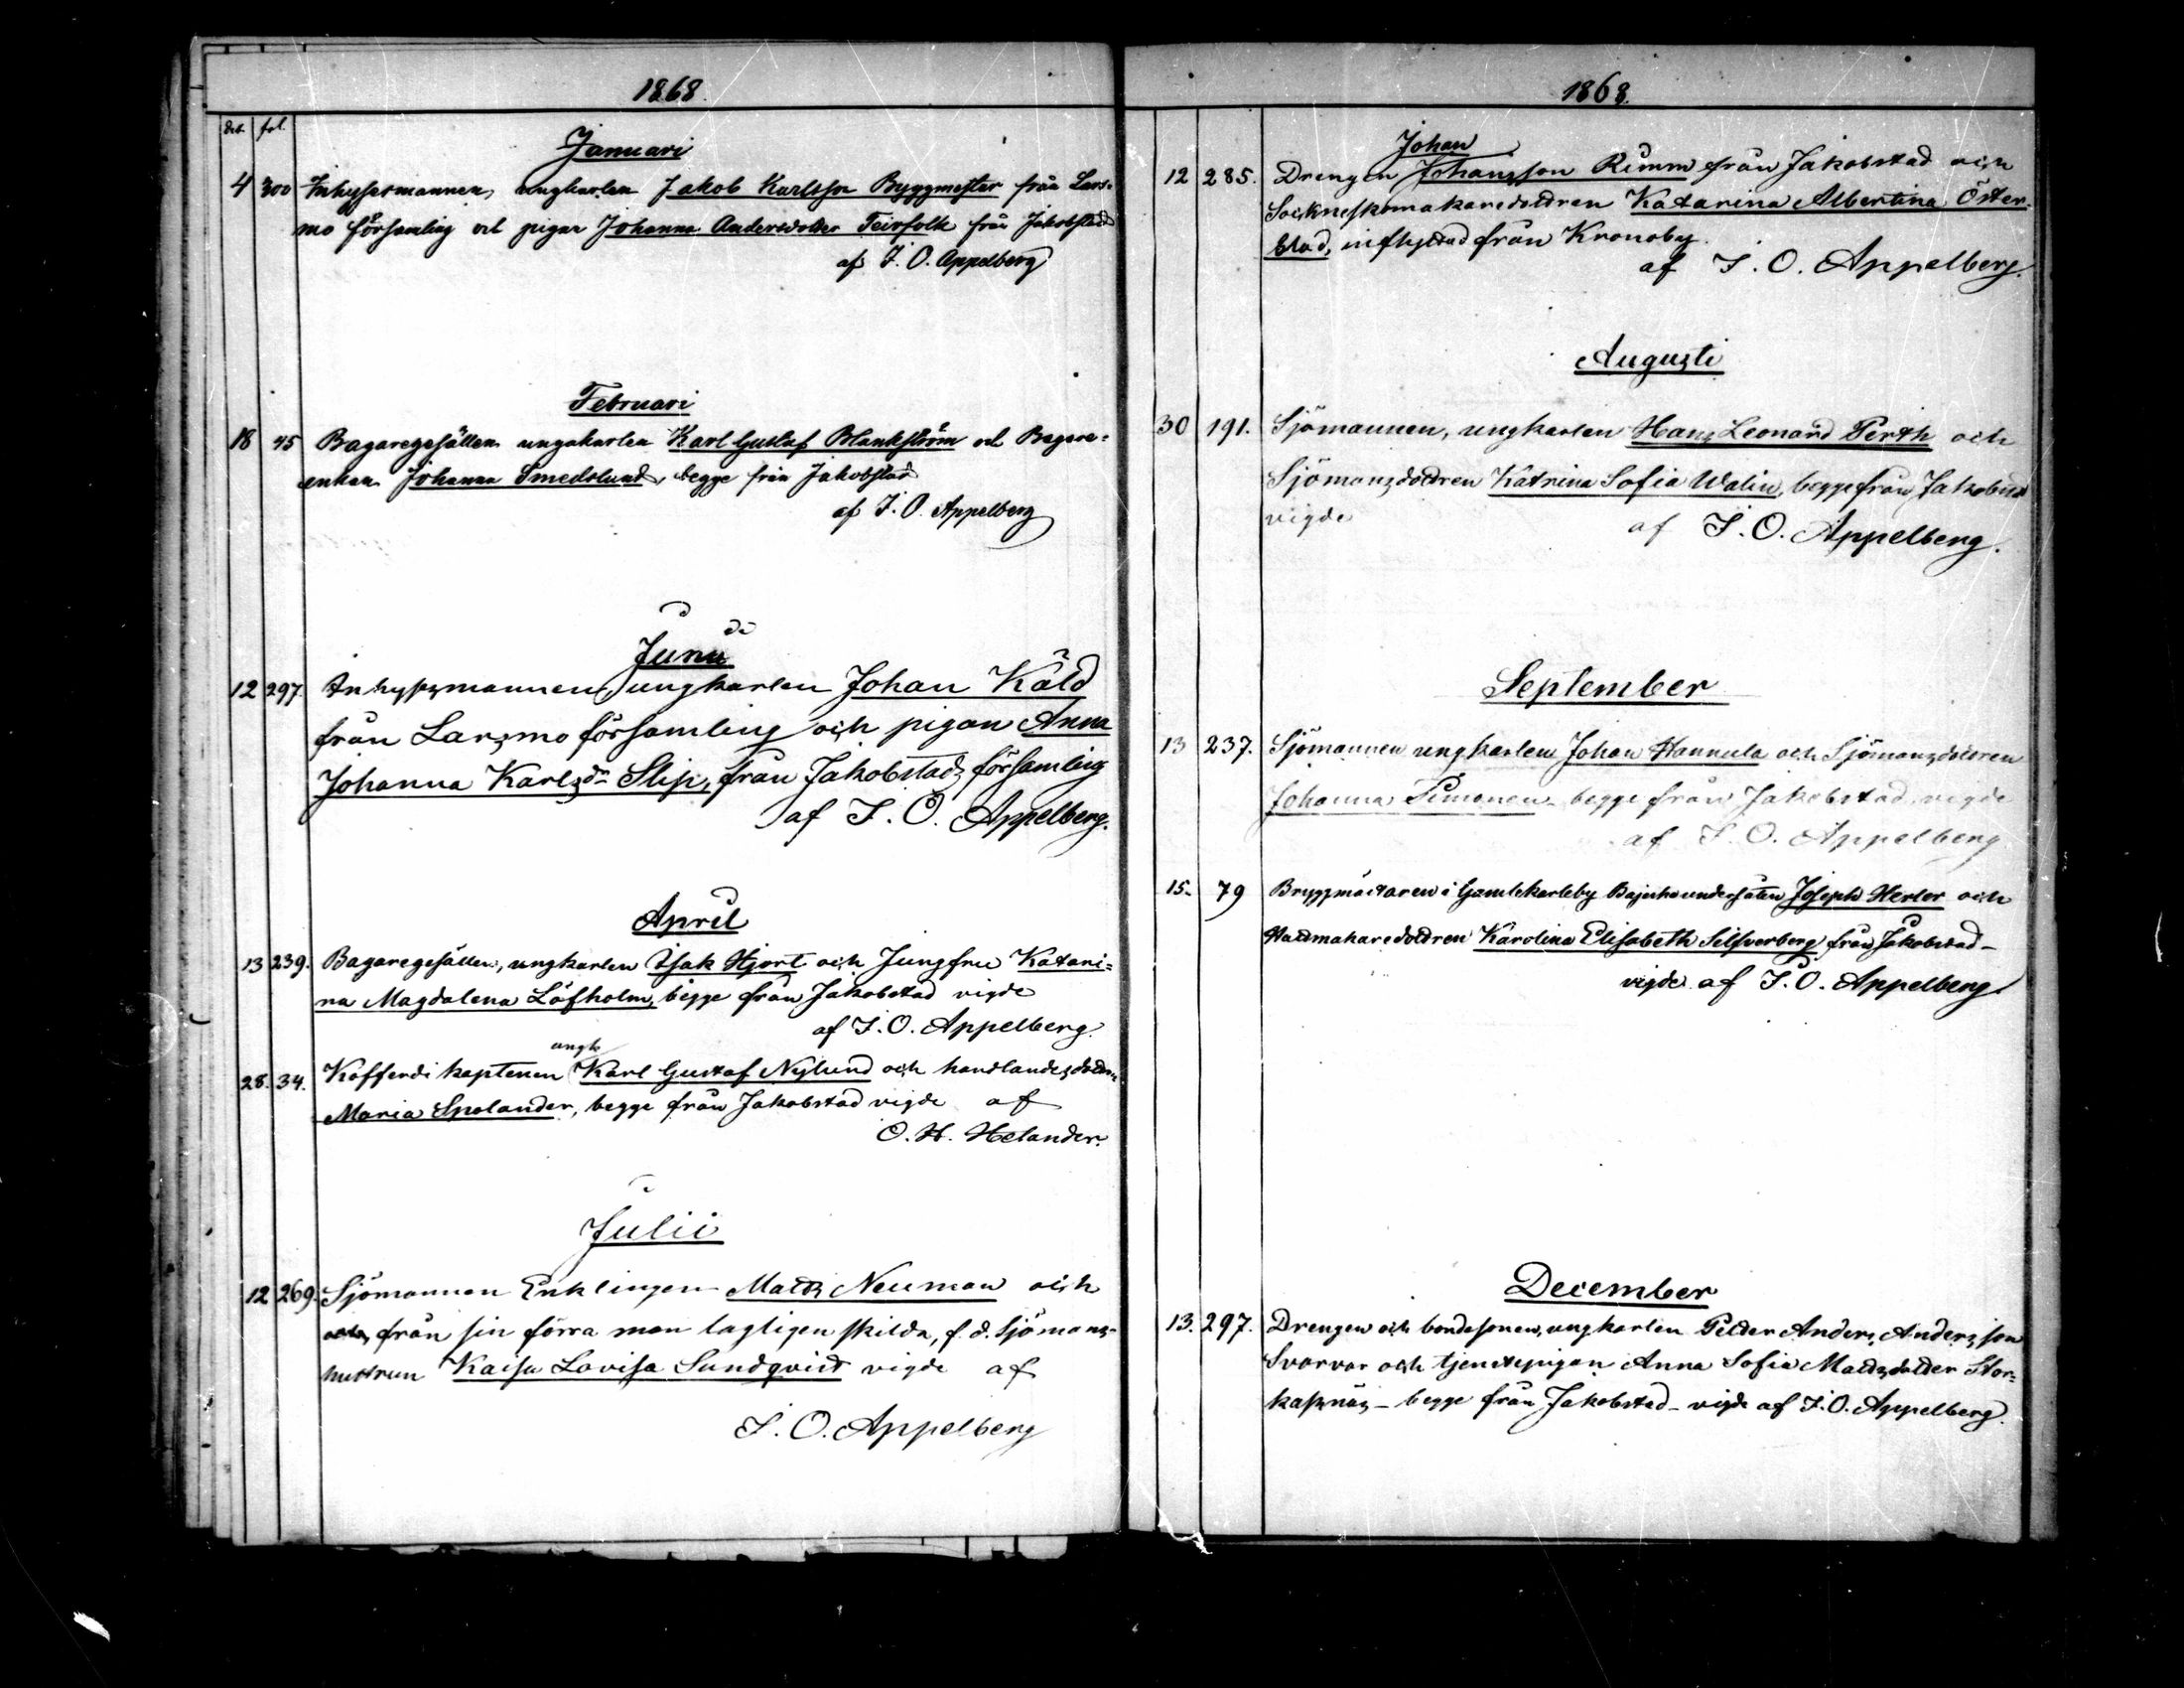 1868.
dat. fol.
Januari
4 300 Inhysesmannen, ungkarlen Jakob Karlsson Byggmester från Lars-
mo församling och pigan Johanna Andersdotter Teirfolk från Jakobstad
af J. O. Appelberg
Februari
18 45 Bagaregesällen ungakarlen Karl Gustaf Blankström och Bagare-
enkan Johanna Smedslund, begge från Jakobstad
af J. O. Appelberg
Junii
12 297. Inhysesmannen, ungkarlen Johan Käld
från Larsmo församling och pigan Anna
Johanna Karlsdr Slip, från Jakobstads församling
af J. O. Appelberg.
April
13 239. Bagaregesällen, ungkarlen Isak Hjort och Jungfru Katari=
na Magdalena Löfholm, begge från Jakobstad vigde
af J. O. Appelberg.
ungk
28. 34. Kofferdi kaptenen Karl Gustaf Nylund och handlandesdottren
Maria Spolander, begge från Jakobstad vigde af
O. H. Helander.
Julii
12 269. Sjömannen Enklingen Matts Neuman och
från sin förra man lagligen skilda, f. d. Sjömans-
hustrun Kaisa Lovisa Sundqvist vigde af
J. O. Appelberg
1868.
Johan
12 285. Drengen Johansson Rimm från Jakobstad och
Sockneskomakaredottren Katarina Albertina Öster-
blad, inflyttad från Kronoby.
af J. O. Appelberg.
Augusti
30 191. Sjömannen, ungkarlen Hans Leonard Perth och
Sjömansdottren Katrina Sofia Walin, begge från Jakobstad
vigde af J. O. Appelberg.
September
13 237. Sjömannen ungkarlen Johan Hannula och Sjömansdottren
Johanna Simonen begge från Jakobstad vigde
af J. O. Appelberg
15. 79 Bryggmästaren i Gamlekarleby Bajerska undersåten Joseph Herler och
Hattmakaredottren Karolina Elisabeth Silfverberg från Jakobstad –
vigde af J. O. Appelberg.
December
13. 297. Drengen och bondesonen, ungkarlen Petter Anders Andersson
Svarvar och tjenstepigan Anna Sofia Mattsdotter Stor=
kasznäs – begge från Jakobstad – vigde af J. O. Appelberg.